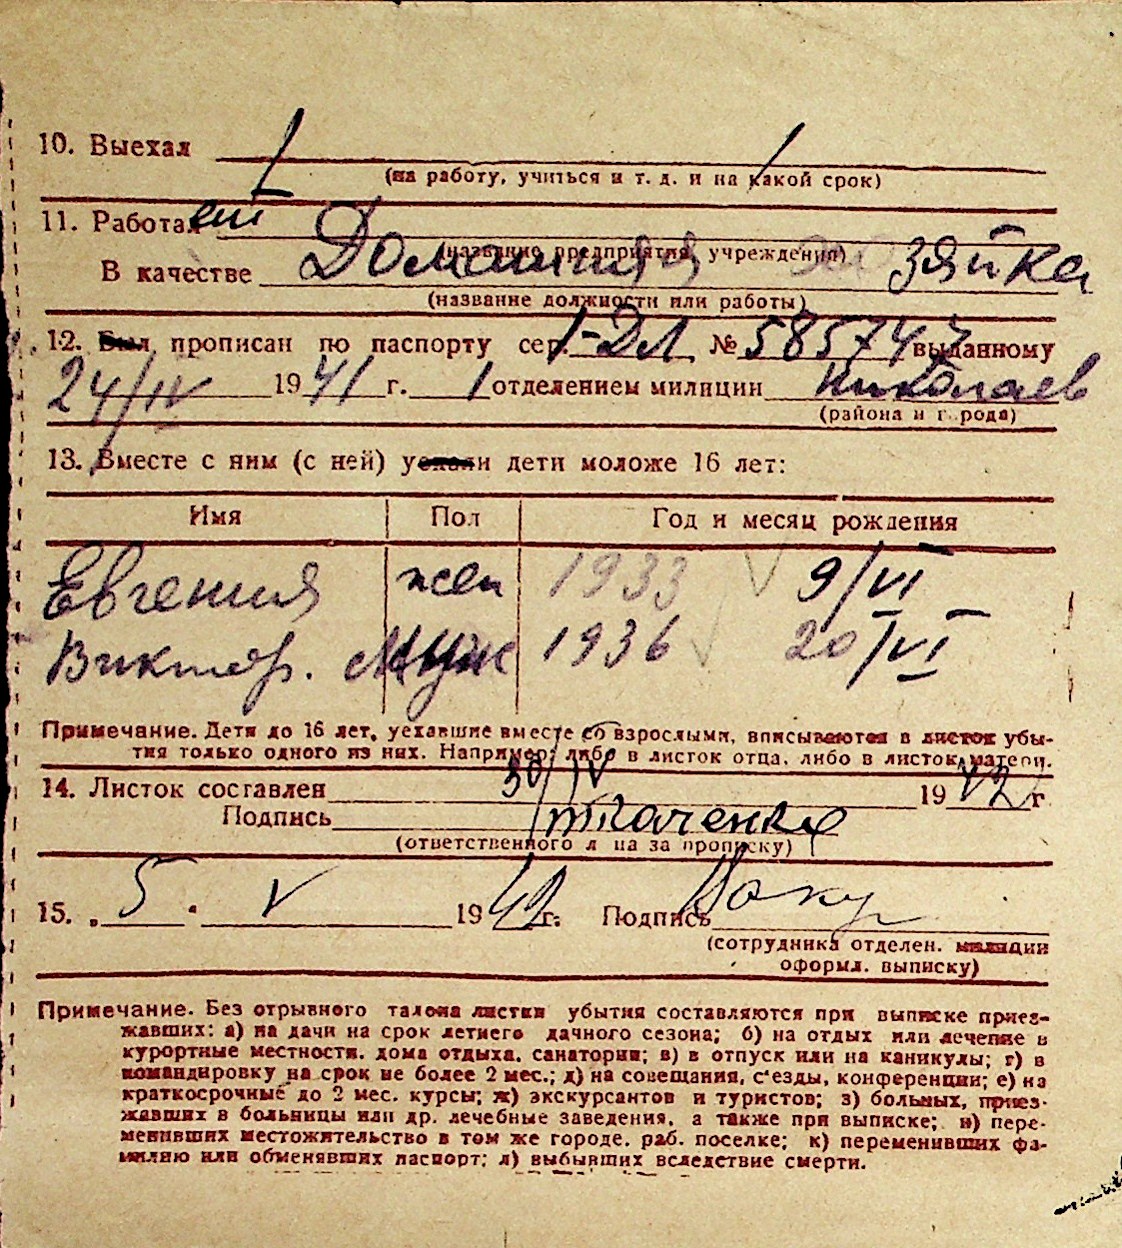 10. Выехал
(на работу, учиться и т. д. и на какой срок)
11. Работает
(название предприятия, учреждения)
В качестве Домашняя хозяйка
(название должности или работы)
12. Был прописан по паспорту сер. 1-ДЛ № 585747 выданному
24/IV 1941 г. 1 отделением милиции Николаев
(района и города)
13. Вместе с ним (с ней) уехали дети моложе 16 лет:
Имя Пол Год и месяц рождения
Евгения жен 1933 9/VI
Виктор. муж 1936 20/VI
Примечание. Дети до 16 лет, уехавшие вместе со взрослыми, вписываются в листок убы-
тия только одного из них. Например: либо в листок отца, либо в листок матери.
14. Листок составлен 30/IV 1942 г
Подпись Ткаченко
(ответственного лица за прописку)
15. „5" V 1942 г. Подпись
(сотрудника отделен. милиции
оформл. выписку)
Примечание. Без отрывного талона листки убытия составляются при выписке приез-
жавших: а) на дачи на срок летнего дачного сезона; б) на отдых или лечение в
курортные местности, дома отдыха, санатории; в) в отпуск или на каникулы; г) в
командировку на срок не более 2 мес.; д) на совещания, с'езды, конференции; е) на
краткосрочные до 2 мес. курсы; ж) экскурсантов и туристов; з) больных, приез-
жавших в больницы или др. лечебные заведения, а также при выписке; и) пере-
менивших местожительство в том же городе, раб. поселке; к) переменивших фа-
милию или обменявших паспорт; л) выбывших вследствие смерти.